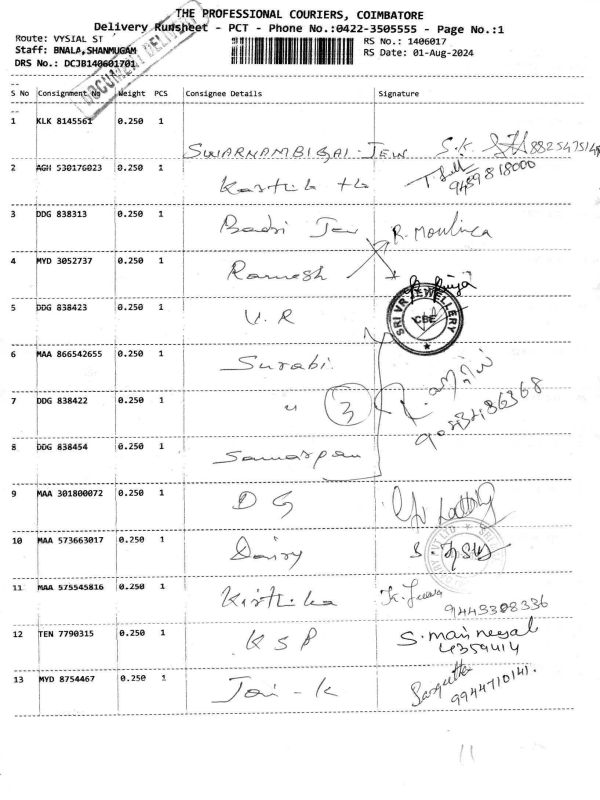 THE PROFESSIONAL COURIERS, COIMBATORE
Delivery Runsheet - PCT - Phone No.:0422-3505555 - Page No.:1
Route: VYSIAL ST
RS No.: 1406017
Staff: BNALA,SHANMUGAM
RS Date: 01-Aug-2024
DRS No.: DCJB140601701
S No Consignment No Weight PCS Consignee Details Signature
1 KLK 8145562 0.250 1 SWARNAMBIGAI-JEW S.K 8825475148
2 AGH 530176023 0.250 1 Karthik 9489818000
3 DDG 838313 0.250 1 Badri Jew R. Moulica
4 MYD 3052737 0.250 1 Ramesh
5 DDG 838423 0.250 1 V. R SRI VR JEWELLERY CBE
6 MAA 866542655 0.250 1 Surabi.
7 DDG 838422 0.250 1 " 3
8 DDG 838454 0.250 1 Samarpan
9 MAA 301800072 0.250 1 D G
10 MAA 573663017 0.250 1 Dairy
11 MAA 575545816 0.250 1 Kirthika 9443308336
12 TEN 7790315 0.250 1 K S P 4359414
13 MYD 8754467 0.250 1 Jai-k 9944710141.
11